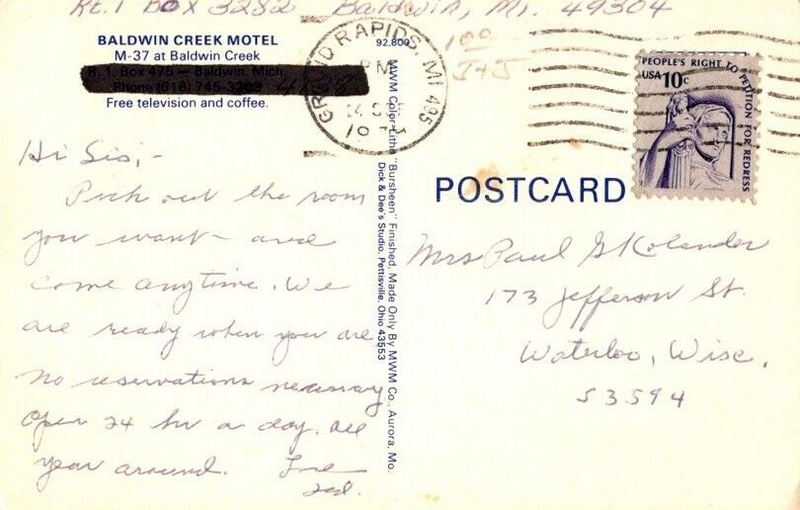 Rt. 1 Box 3282 Baldwin, Mi. 49304
BALDWIN CREEK MOTEL
M-37 at Baldwin Creek
R. 1, Box 475 — Baldwin, Mich.
Phone (616) 745-
Free television and coffee.
92.800
GRAND RAPIDS, MI 495
PM
PEOPLE'S RIGHT TO PETITION FOR REDRESS
USA 10c
POSTCARD
MWM Color-Litho "Bursheen" Finished. Made Only By MWM Co., Aurora, Mo.
Dick & Dee's Studio, Pettisville, Ohio 43553
Hi Sis,-
Pick out the room
you want - and
come anytime. We
are ready when you are
No reservations necessary
Open 24 hr a day. all
year around.
Mrs Paul G Kolander
173 Jefferson St.
Waterloo, Wisc.
53594